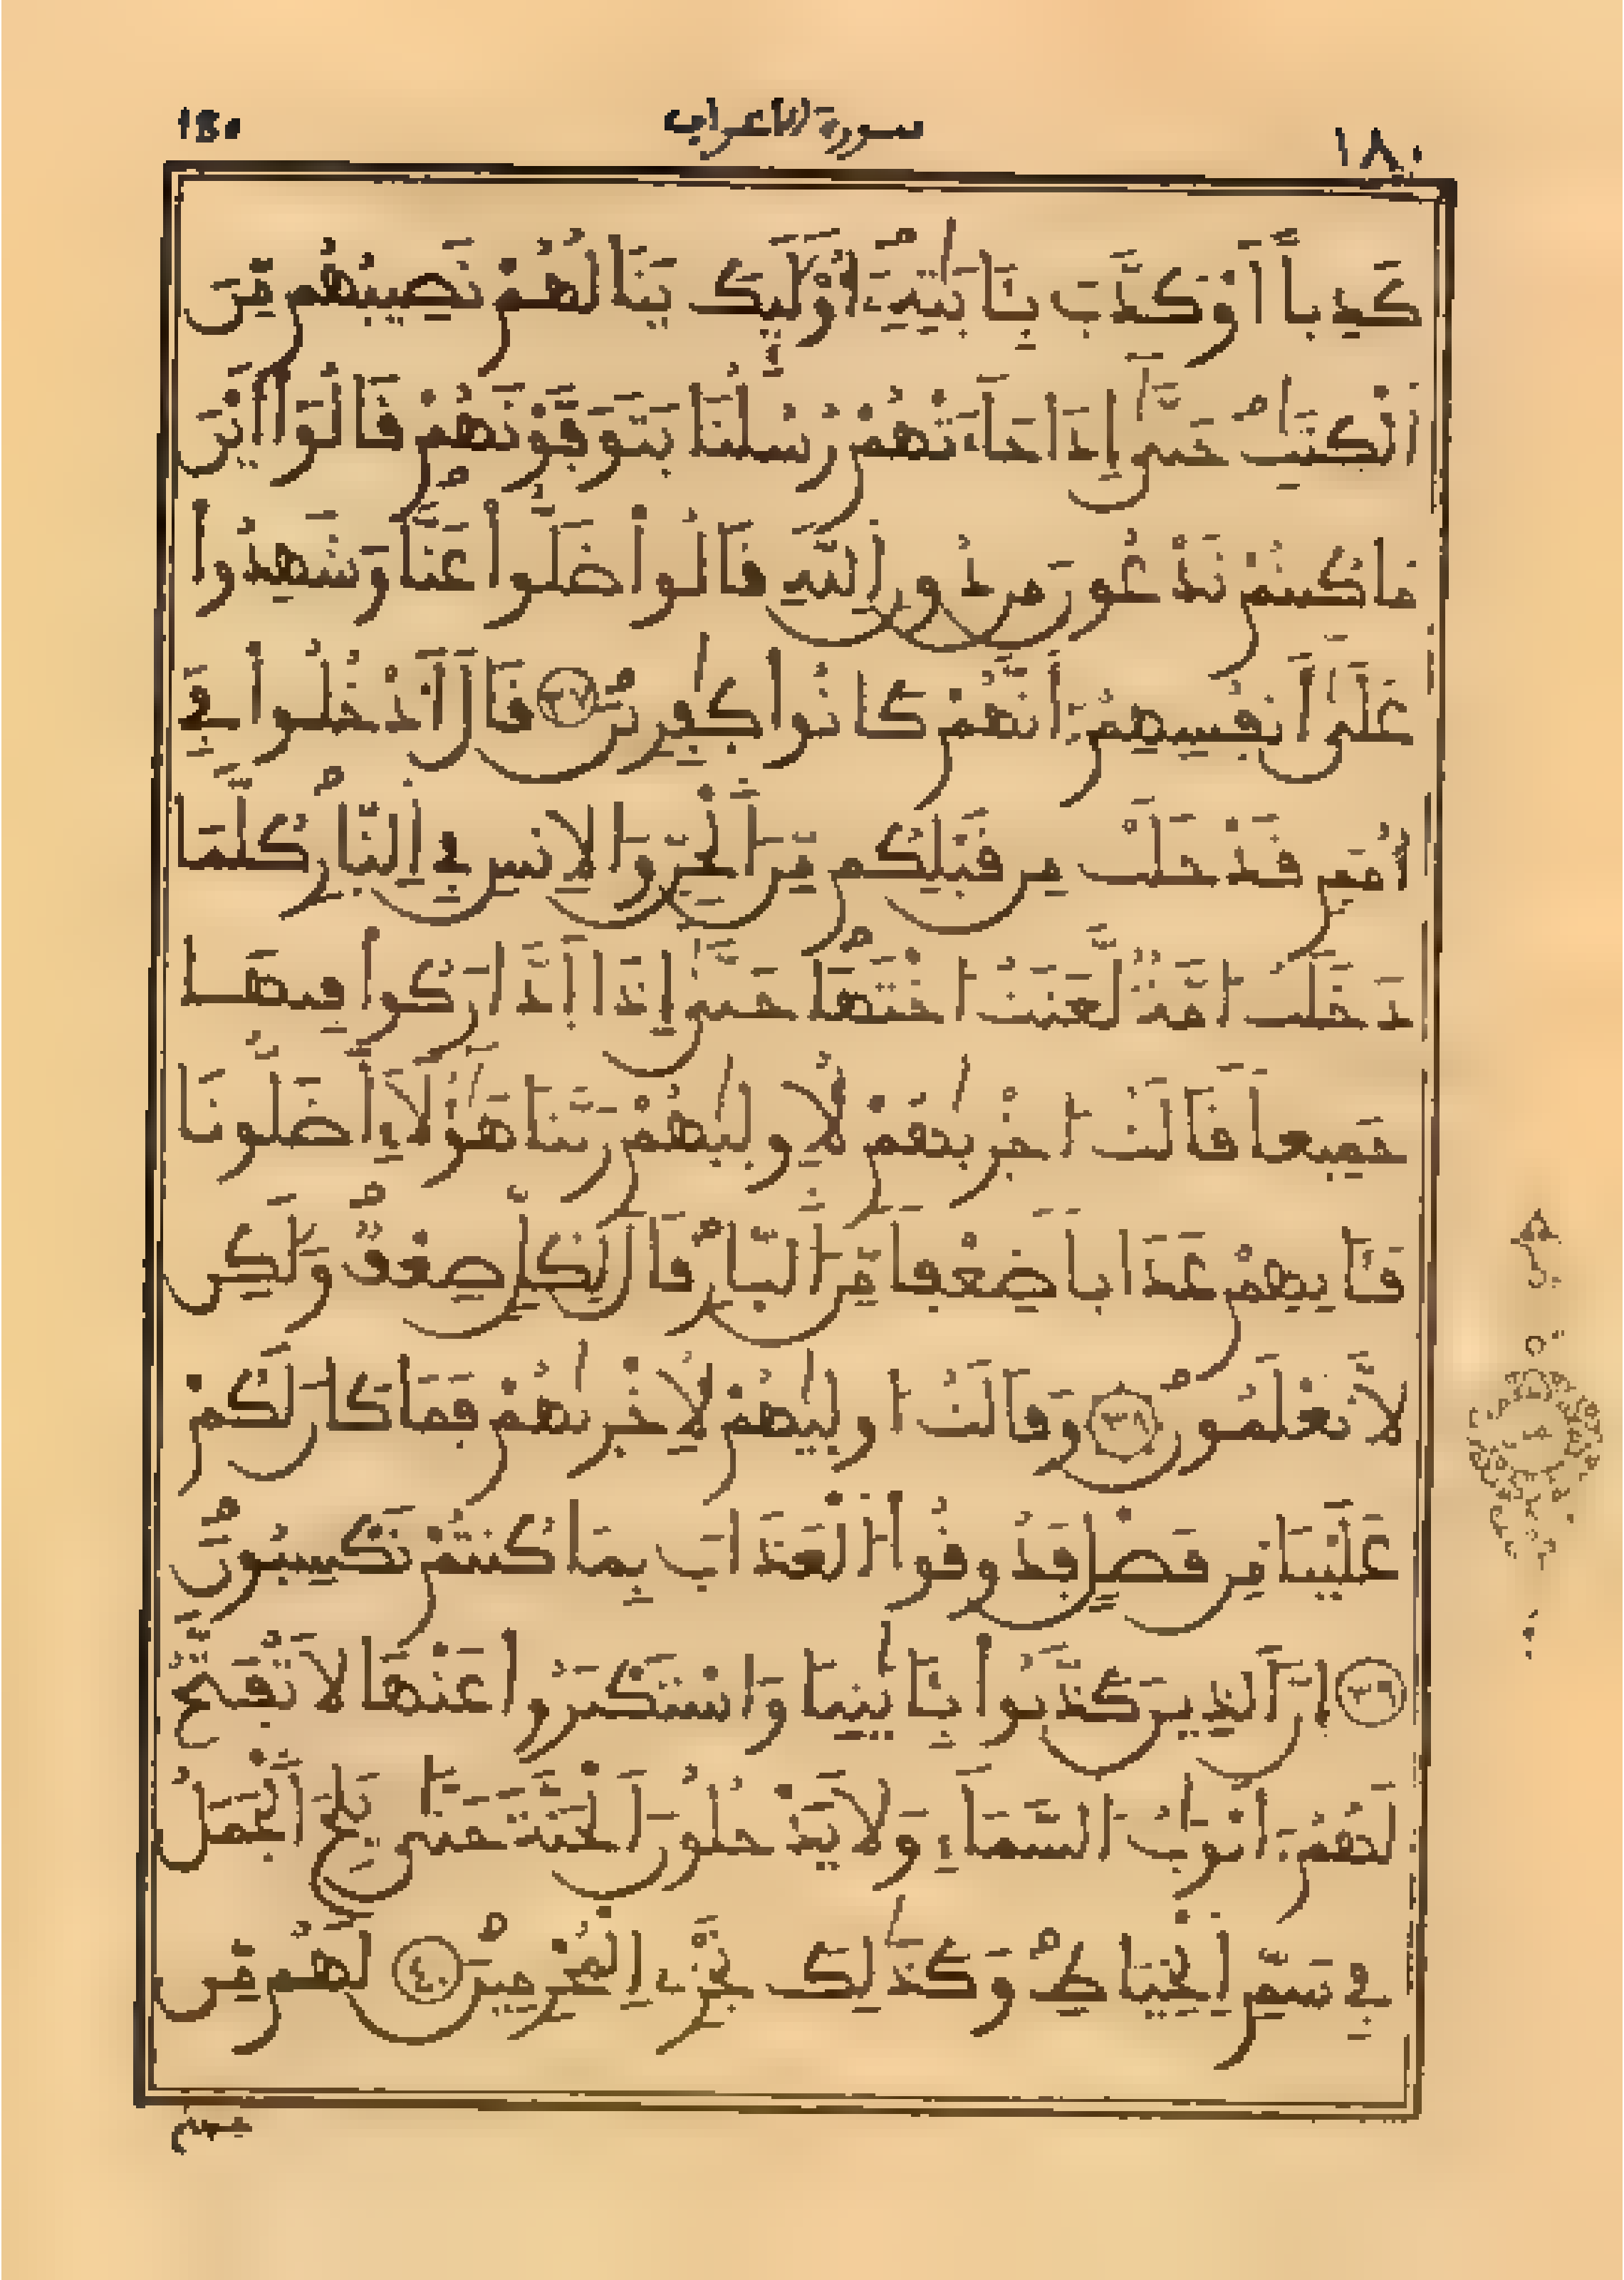 180 سورة الاعراف ١٨٠
كَذِباً اَوْ كَذَّبَ بِـَٔايَٰتِهِۦٓ أُوْلَٰٓئِكَ يَنَالُهُمْ نَصِيبُهُم مِّنَ
اَلْكِتَٰبِ حَتَّىٰٓ إِذَا جَآءَتْهُمْ رُسُلُنَا يَتَوَفَّوْنَهُمْ قَالُوٓاْ أَيْنَ
مَا كُنتُمْ تَدْعُونَ مِن دُونِ اِللَّهِ قَالُواْ ضَلُّواْ عَنَّا وَشَهِدُواْ
عَلَىٰٓ أَنفُسِهِمُۥٓ أَنَّهُمْ كَانُواْ كَٰفِرِينَ ٣٧ قَالَ اَدْخُلُواْ فِےٓ
أُمَمٍ قَدْ خَلَتْ مِن قَبْلِكُم مِّنَ اَلْجِنِّ وَالِانسِ فِے اِلنَّارِ كُلَّمَا
دَخَلَتُ ا۟مَّةٌ لَّعَنَتُ ا۟خْتَهَا حَتَّىٰٓ إِذَا اَدَّارَكُواْ فِيهَا
جَمِيعاً قَالَتُ ا۟خْرَىٰهُمْ لُأولَىٰهُمْ رَبَّنَا هَٰٓؤُلَآءِ اَضَلُّونَا
فَـَٔاتِهِمْ عَذَاباً ضِعْفاً مِّنَ اَلنَّارِ قَالَ لِكُلٍّ ضِعْفٌ وَلَٰكِن
لَّا تَعْلَمُونَ ٣٨ وَقَالَتُ ا۟ولَىٰهُمْ لُأخْرَىٰهُمْ فَمَا كَانَ لَكُمْ
عَلَيْنَا مِن فَضْلٍ فَذُوقُواْ اَلْعَذَابَ بِمَا كُنتُمْ تَكْسِبُونَ
٣٩ إِنَّ اَلَّذِينَ كَذَّبُواْ بِـَٔايَٰتِنَا وَاسْتَكْبَرُواْ عَنْهَا لَا تُفَتَّحُ
لَهُمُۥٓ أَبْوَٰبُ السَّمَآءِ وَلَا يَدْخُلُونَ اَلْجَنَّةَ حَتَّىٰ يَلِجَ اَلْجَمَلُ
فِے سَمِّ اِلْخِيَاطِ وَكَذَٰلِكَ نَجْزِے اِلْمُجْرِمِينَ ٤٠ لَهُم مِّن